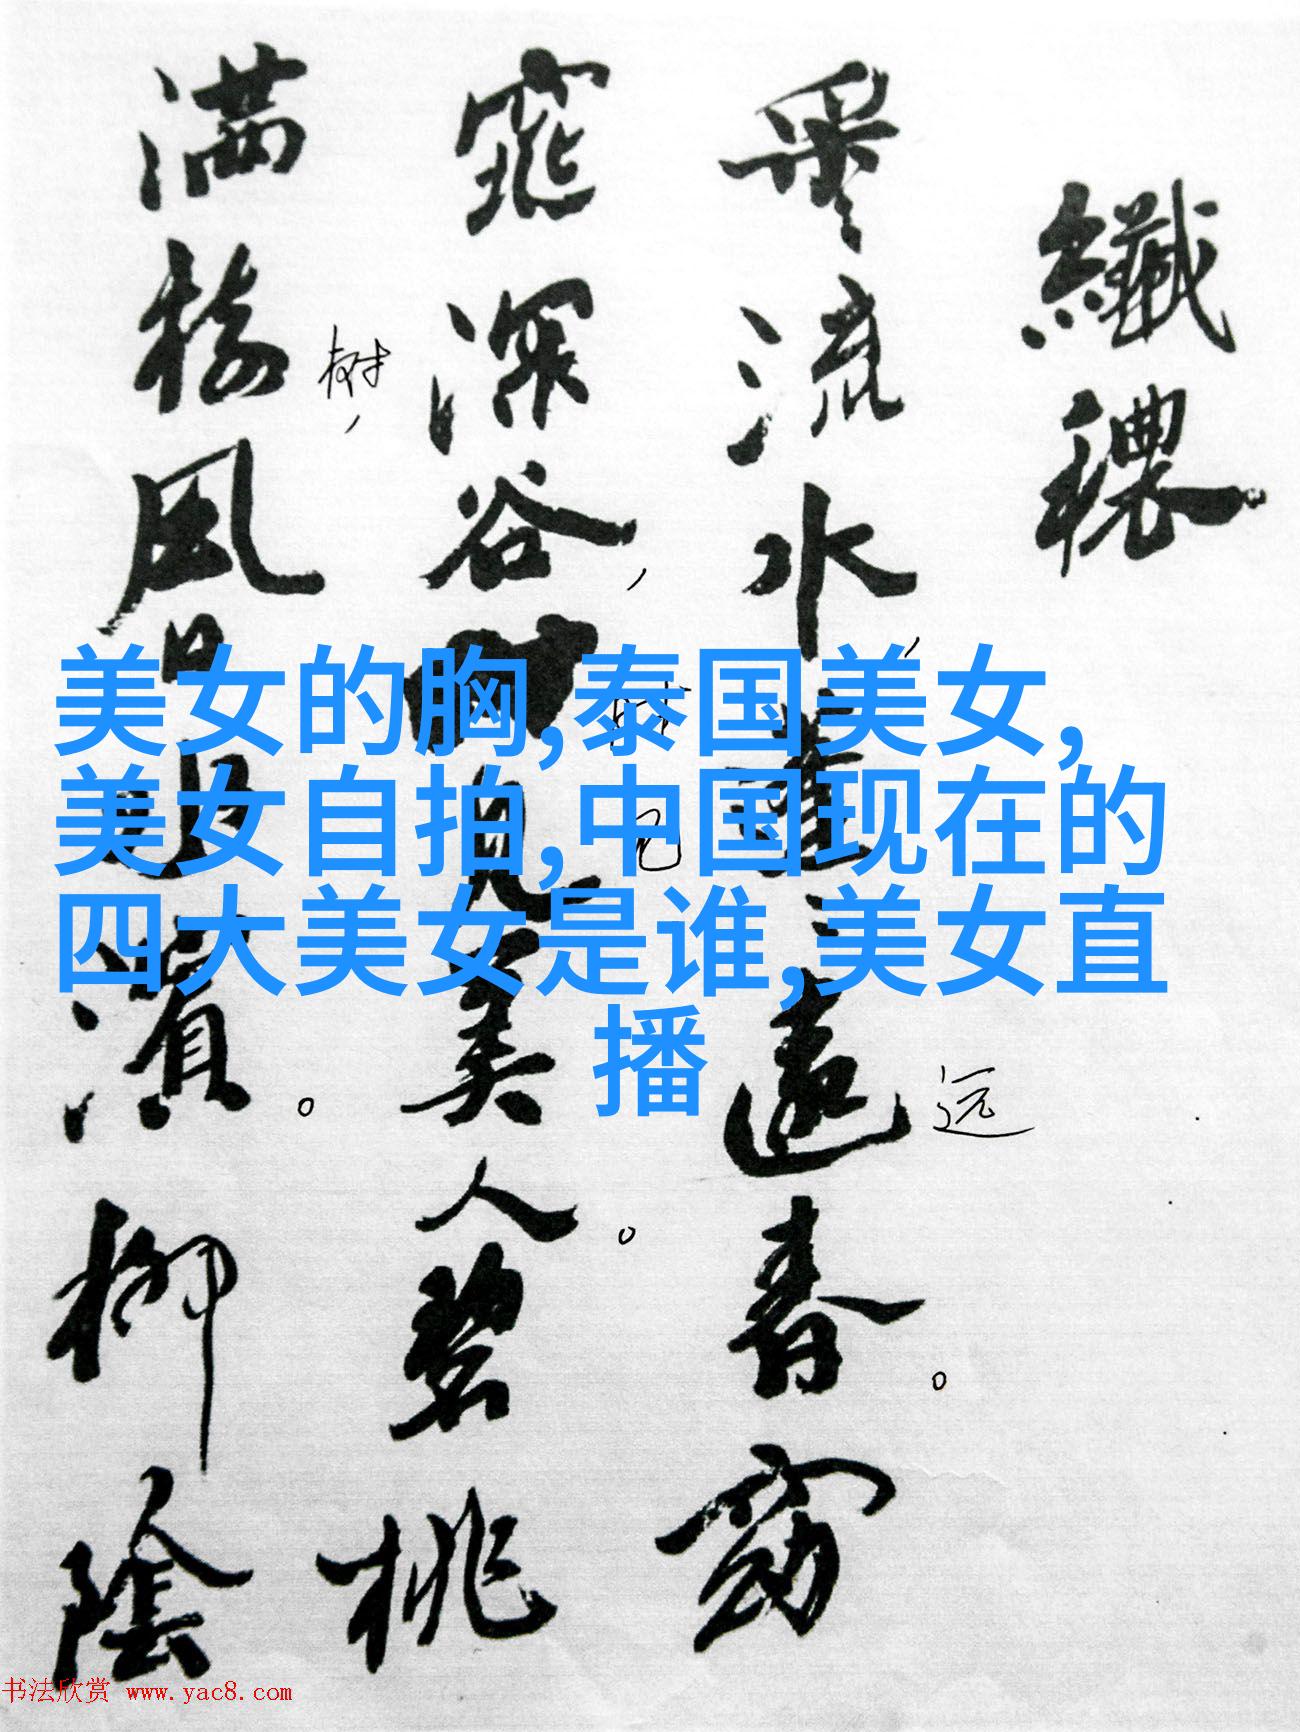 纖穠
采流水，蓬遠春。窈
远
窕深谷，見美人。碧桃
时
见
满樹，風日水濱。柳陰
树
美女的胸,泰国美女,
美女自拍,中国现在的
四大美女是谁,美女直
播
书法欣赏 www.yac8.com